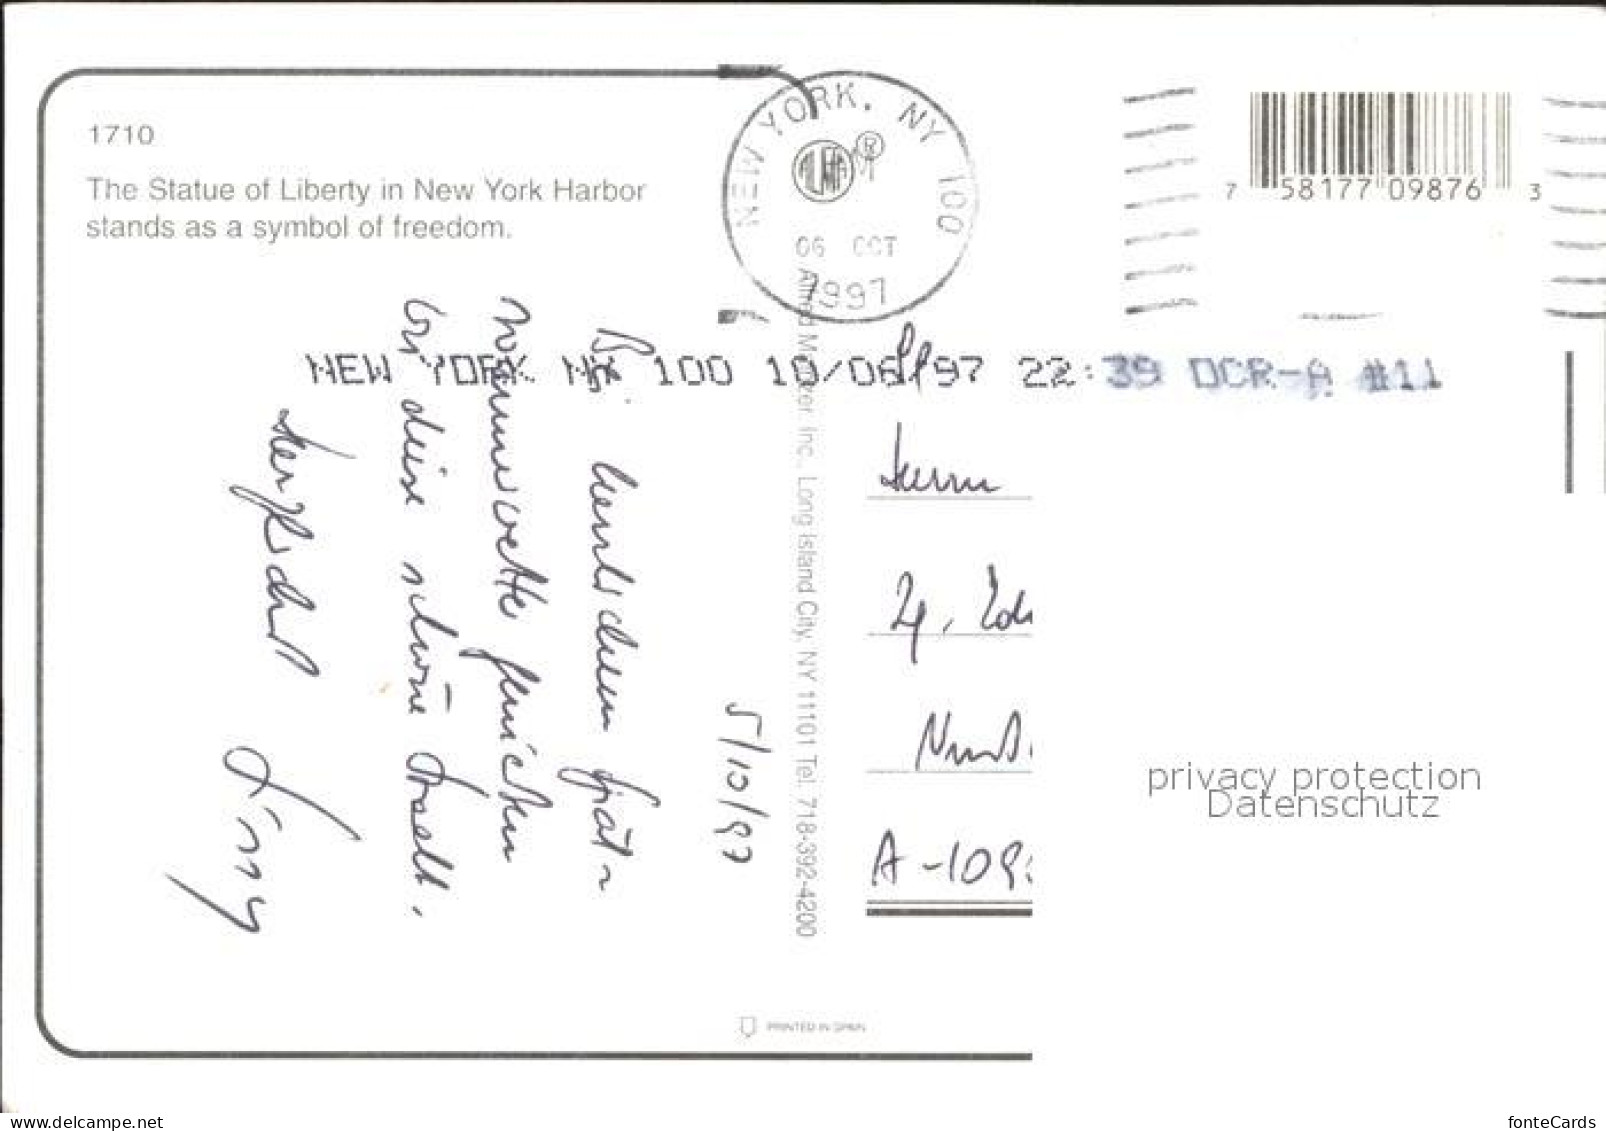 1710
The Statue of Liberty in New York Harbor
stands as a symbol of freedom.
NEW YORK, NY 100
06 OCT
1997
7 58177 09876 3
NEW YORK NY 100 10/06/97 22:39 OCR-A #11
Alfred Mainzer, Inc., Long Island City, NY 11101 Tel. 718-392-4200
5/10/97
Bei herrlichem
wir diese schöne Stadt.
Herzlichst
Herrn
A-109
PRINTED IN SPAIN
privacy protection
Datenschutz
www.delcampe.net
fonteCards